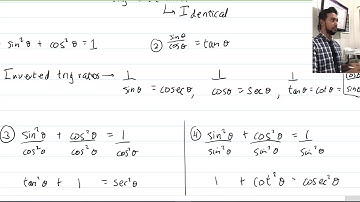 ↳ Identical
sin²θ + cos²θ = 1
② sinθ/cosθ = tanθ
Inverted trig ratios → 1/sinθ = cosecθ, 1/cosθ = secθ, 1/tanθ = cotθ =
③ sin²θ/cos²θ + cos²θ/cos²θ = 1/cos²θ
④ sin²θ/sin²θ + cos²θ/sin²θ = 1/sin²θ
tan²θ + 1 = sec²θ
1 + cot²θ = cosec²θ